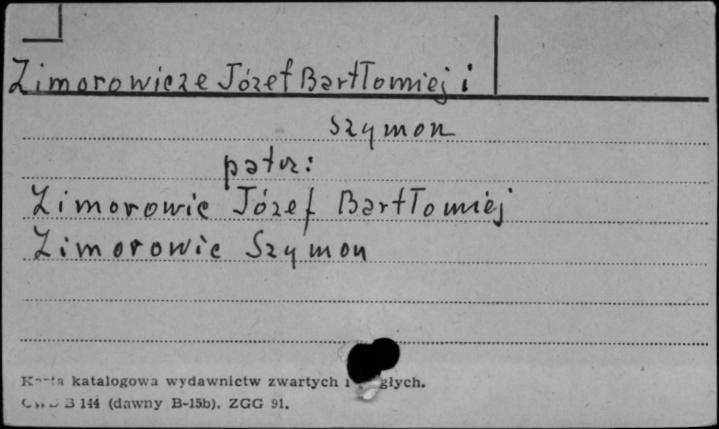 Zimorowicze Józef Bartłomiej i
Szymon
patrz:
Zimorowic Józef Bartłomiej
Zimorowic Szymon
katalogowa wydawnictw zwartych i
B 144 (dawny B-15b). ZGG 91.